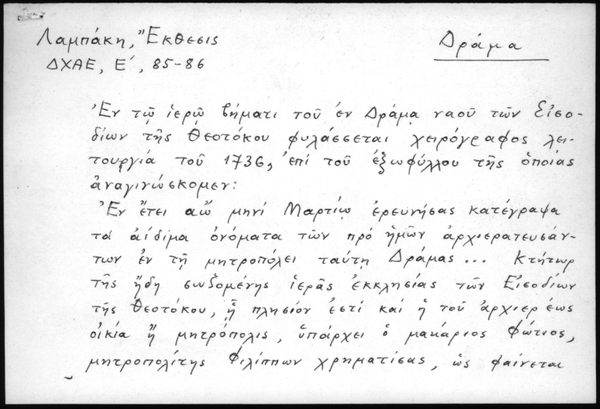 Λαμπάκη, "Έκθεσις
Δράμα
ΔΧΑΕ, Ε', 85-86
Ἐν τῷ ἱερῷ βήματι τοῦ ἐν Δράμᾳ ναοῦ τῶν Εἰσο-
δίων τῆς Θεοτόκου φυλάσσεται χειρόγραφος λει-
τουργία τοῦ 1736, ἐπί τοῦ ἐξωφύλλου τῆς ὁποίας
ἀναγινώσκομεν:
Ἐν ἔτει αω μηνί Μαρτίῳ ἐρευνήσας κατέγραψα
τά ἀίδιμα ὀνόματα τῶν πρό ἡμῶν ἀρχιερατευσάν-
των ἐν τῇ μητροπόλει ταύτῃ Δράμας ... Κτήτωρ
τῆς ἤδη σωζομένης ἱερᾶς ἐκκλησίας τῶν Εἰσοδίων
τῆς Θεοτόκου, ᾗ πλησίον ἐστί καί ἡ τοῦ ἀρχιερέως
οἰκία ἤ μητρόπολις, ὑπάρχει ὁ μακάριος Φώτιος,
μητροπολίτης Φιλίππων χρηματίσας, ὡς φαίνεται